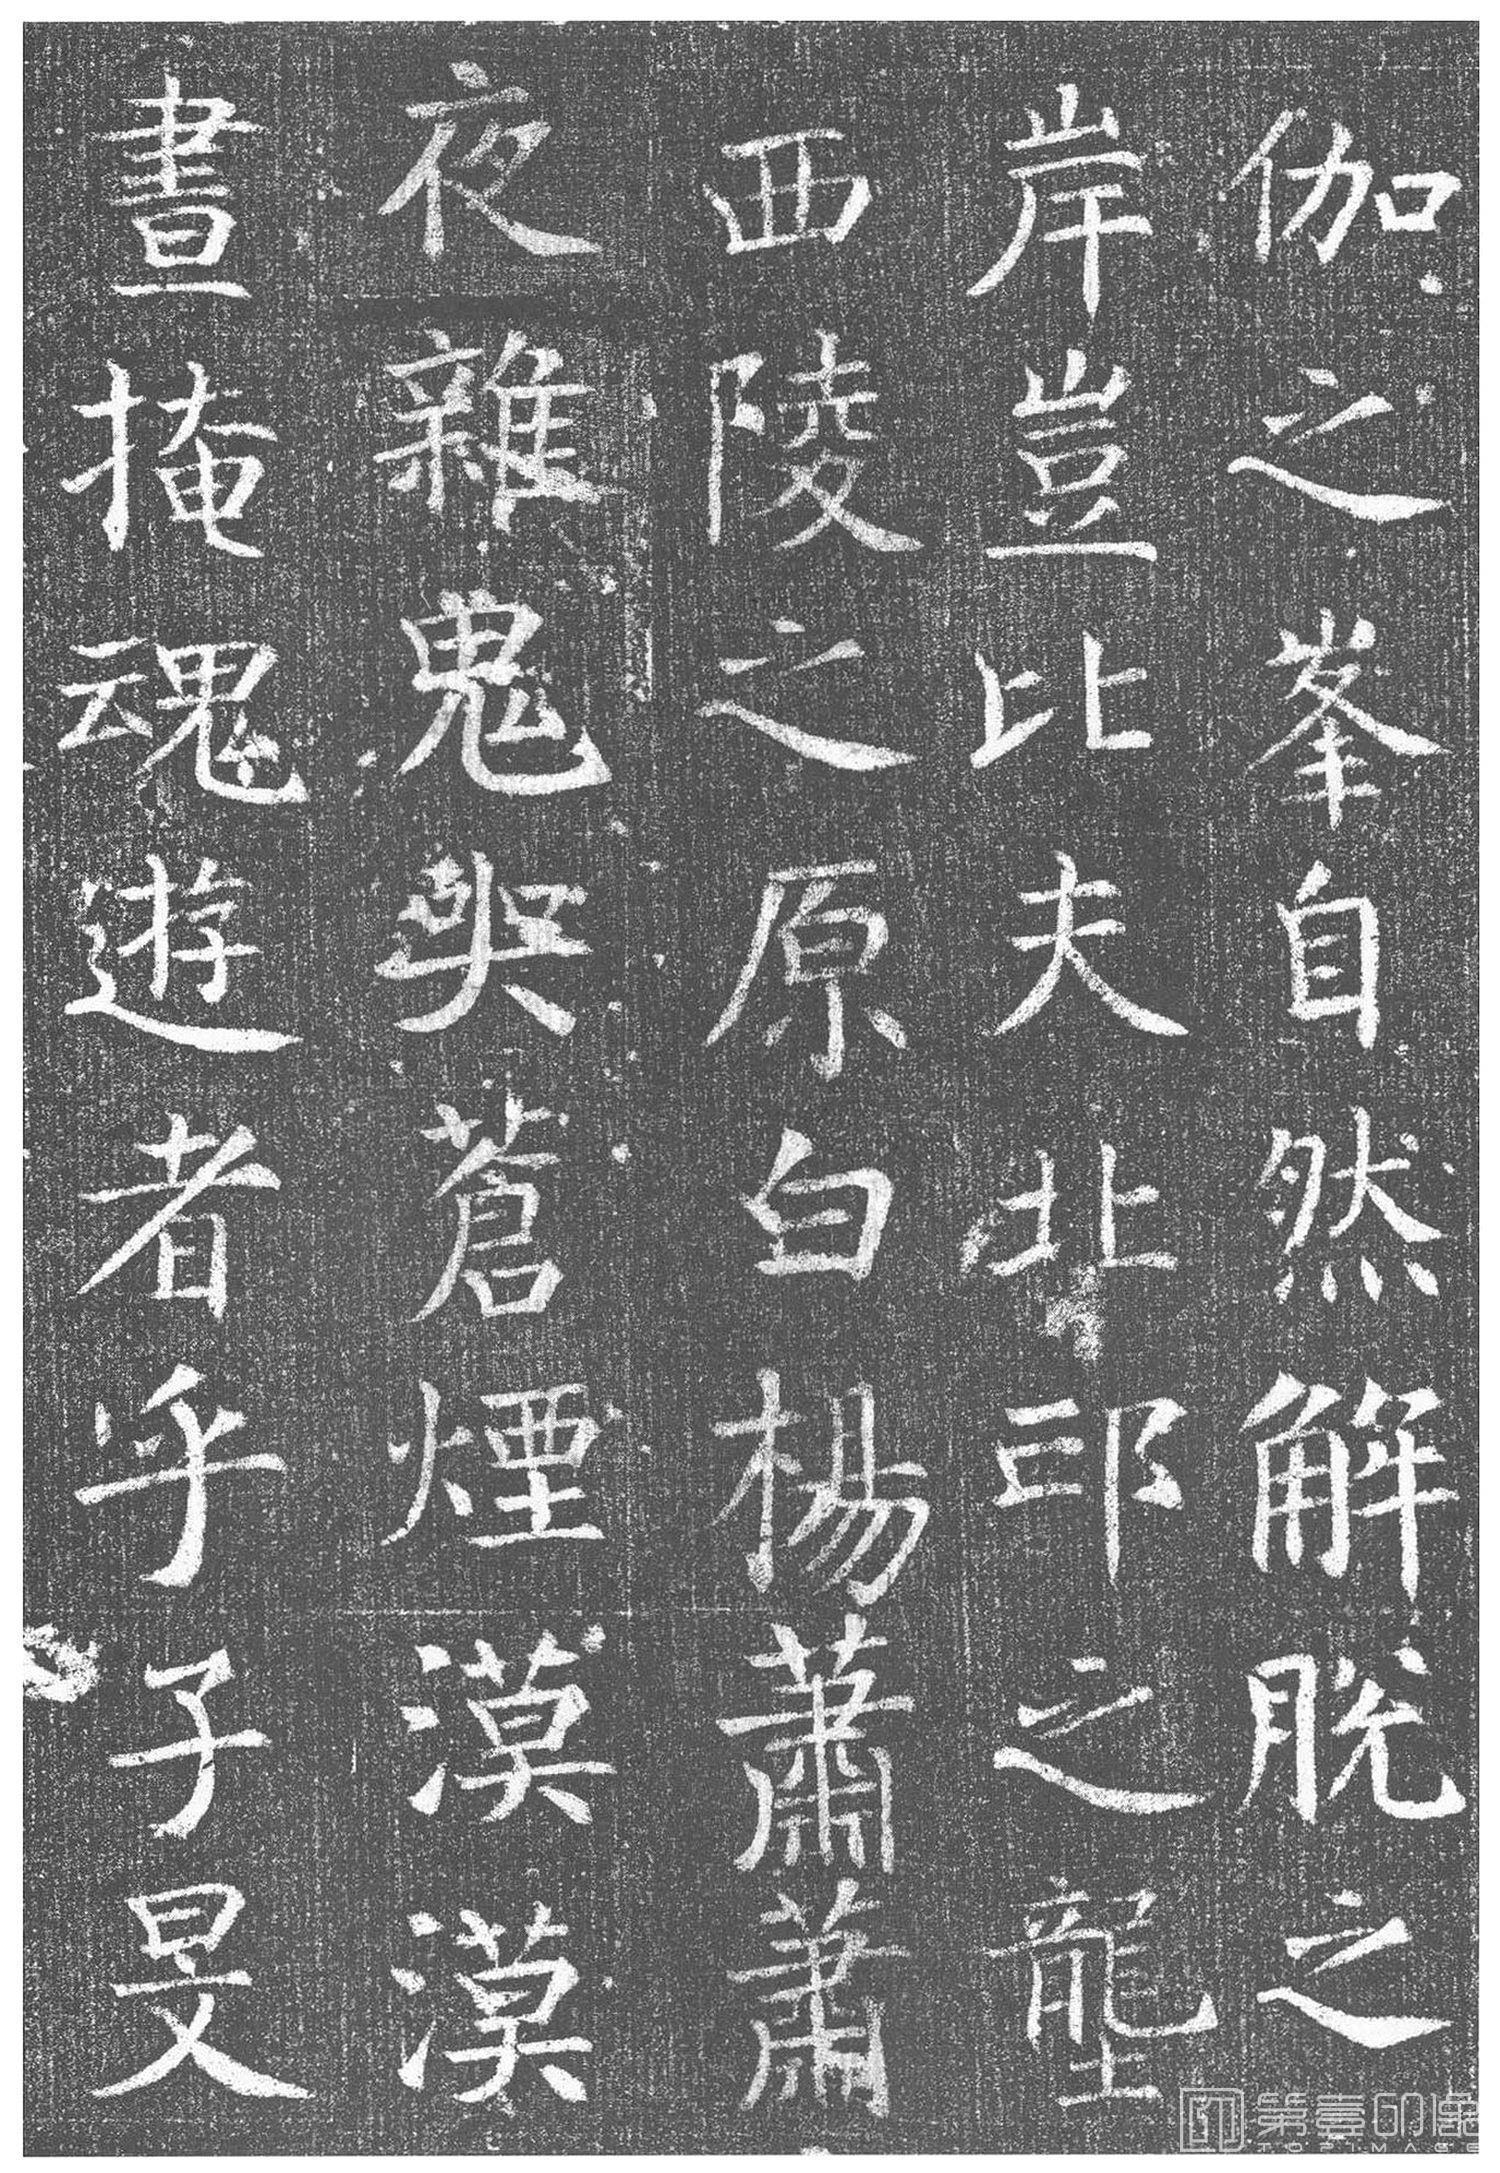 伽之峯自然解脱之
岸豈比夫北邙之壠
西陵之原白楊蕭蕭
夜雜鬼哭蒼煙漠漠
晝掩魂遊者乎子旻
第壹印像
TOPIMAGE